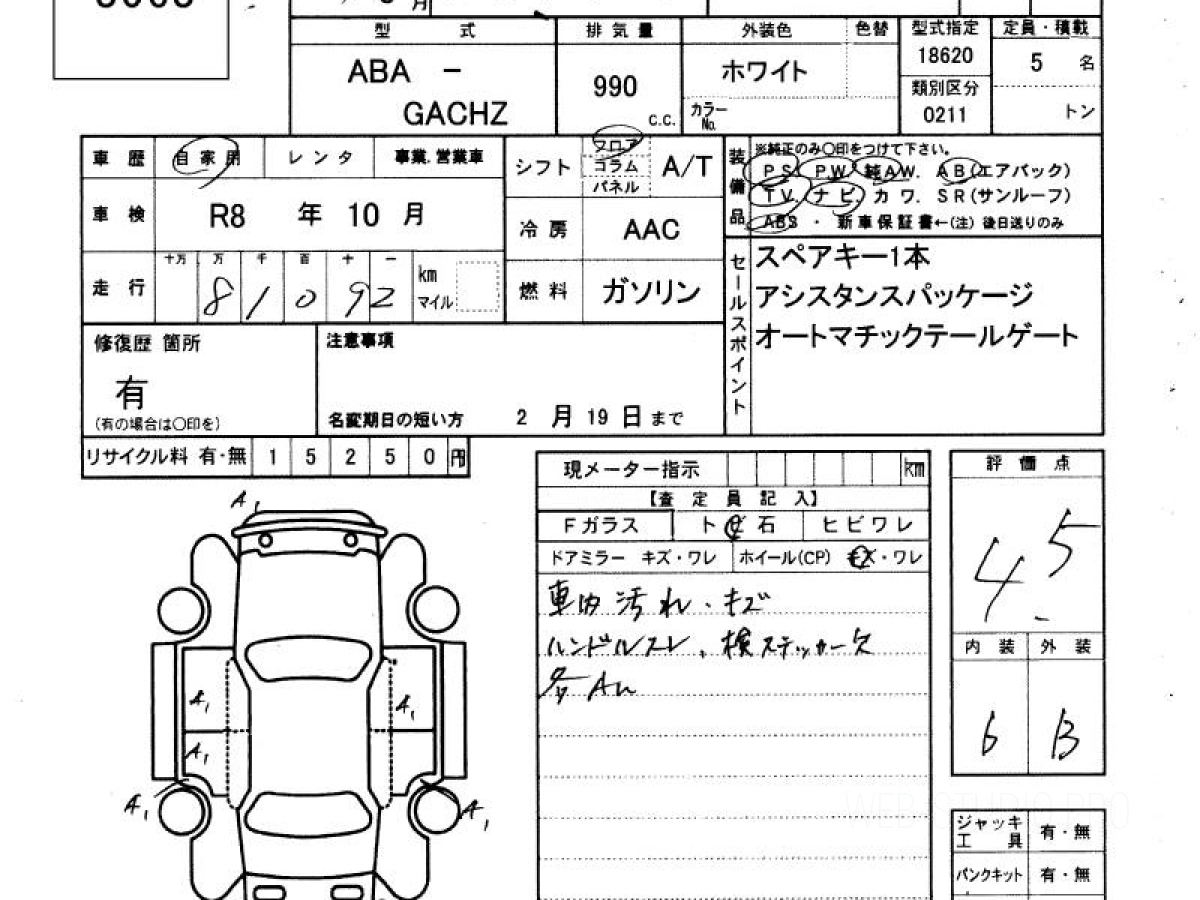 型 式 排気量 外装色 色替 型式指定 定員・積載
ABA － 990 ホワイト 18620 5 名
GACHZ c.c. カラーNo. 類別区分 0211 トン
車 歴 自家用 レンタ 事業.営業車
車 検 R8 年 10 月
走 行 十万 万 千 百 十 一 km
8 1 0 9 2 マイル
シフト フロア コラム パネル A/T
冷 房 AAC
燃 料 ガソリン
装備品 ※純正のみ〇印をつけて下さい。
PS PW 純AW. AB(エアバック)
TV. ナビ. カワ. SR(サンルーフ)
ABS ・ 新車保証書←(注) 後日送りのみ
セールスポイント
スペアキー1本
アシスタンスパッケージ
オートマチックテールゲート
修復歴 箇所
有
(有の場合は〇印を)
注意事項
名変期日の短い方 2 月 19 日 まで
リサイクル料 有・無 1 5 2 5 0 円
現メーター指示 km
【査 定 員 記 入】
Fガラス ト ビ 石 ヒビワレ
ドアミラー キズ・ワレ ホイール(CP) キズ・ワレ
車内 汚れ・キズ
ハンドルスレ、検ステッカー欠
各 A
評 価 点
4.5
内 装 外 装
B
A1
A1
A1
A1
A1
A1
ジャッキ 工 具 有・無
パンクキット 有・無